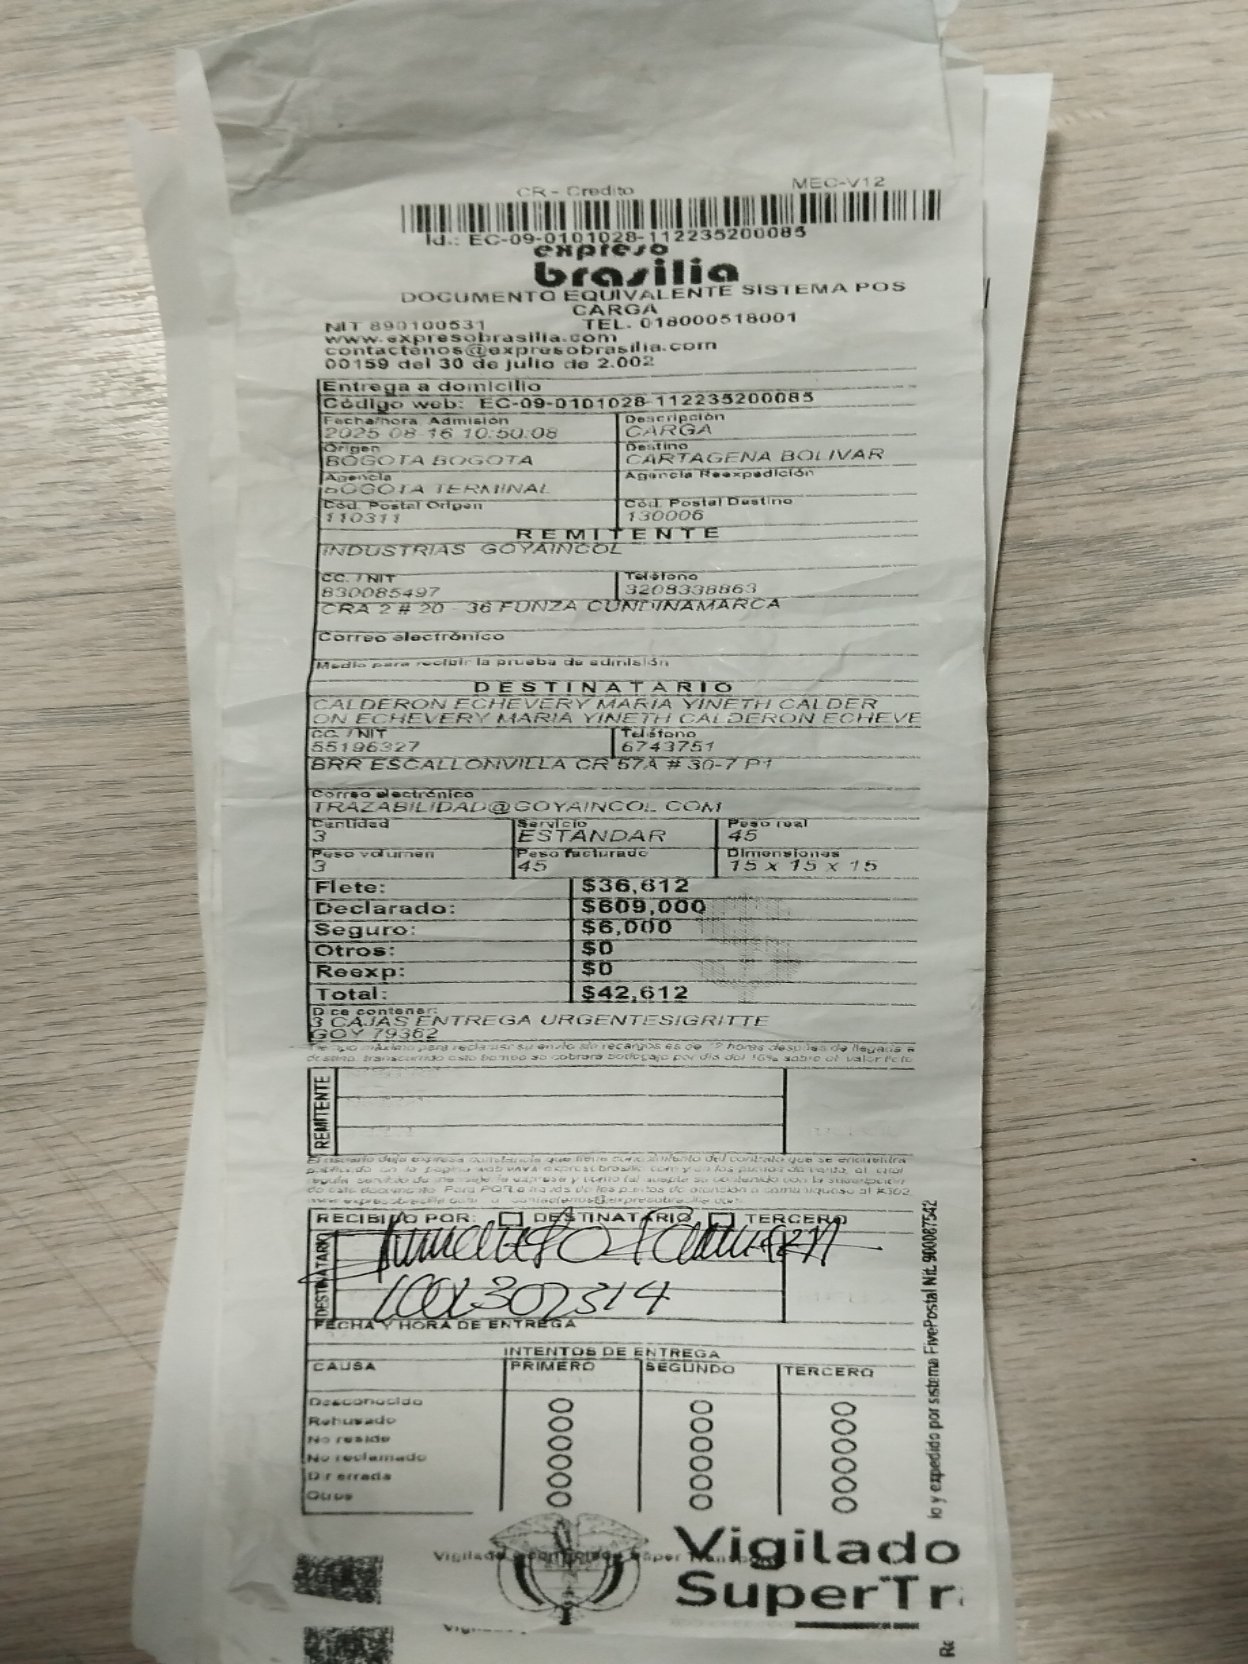 CR - Credito MEC-V12
Id.: EC-09-0101028-112235200085
expreso
brasilia
DOCUMENTO EQUIVALENTE SISTEMA POS
CARGA
NIT 890100531 TEL. 018000518001
www.expresobrasilia.com
contactenos@expresobrasilia.com
00159 del 30 de julio de 2.002
Entrega a domicilio
Código web: EC-09-0101028-112235200085
Fecha/hora Admisión Descripción
2025-08-16 10:50:08 CARGA
Origen Destino
BOGOTA BOGOTA CARTAGENA BOLIVAR
Agencia Agencia Reexpedición
BOGOTA TERMINAL
Cód. Postal Origen Cód. Postal Destino
110311 130006
REMITENTE
INDUSTRIAS GOYAINCOL
CC. / NIT Teléfono
830085497 3208338863
CRA 2 # 20 - 36 FUNZA CUNDINAMARCA
Correo electrónico
Medio para recibir la prueba de admisión
DESTINATARIO
CALDERON ECHEVERY MARIA YINETH CALDER
ON ECHEVERY MARIA YINETH CALDERON ECHEVE
CC. / NIT Teléfono
55196327 6743751
BRR ESCALLONVILLA CR 57A # 30-7 P1
Correo electrónico
TRAZABILIDAD@GOYAINCOL.COM
Cantidad Servicio Peso real
3 ESTANDAR 45
Peso volumen Peso facturado Dimensiones
3 45 15 x 15 x 15
Flete: $36,612
Declarado: $609,000
Seguro: $6,000
Otros: $0
Reexp: $0
Total: $42,612
Dice contener:
3 CAJAS ENTREGA URGENTESIGRITTE
GOY 79362
REMITENTE
RECIBIDO POR: DESTINATARIO TERCERO
DESTINATARIO
1001302314
FECHA Y HORA DE ENTREGA
INTENTOS DE ENTREGA
CAUSA PRIMERO SEGUNDO TERCERO
Desconocido
Rehusado
No reside
No reclamado
Dir errada
Otros
io y expedido por sistema FivePostal Nit. 900087542
Vigilado
SuperTr